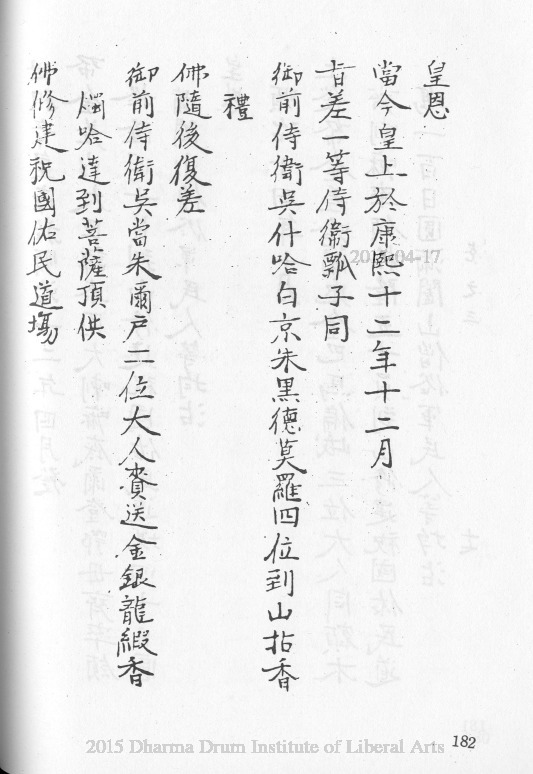 皇恩
當今皇上於康熙十二年十二月
旨差一等侍衛瓢子同
御前侍衛吳什哈白京朱黑德莫羅四位到山拈香
禮
佛隨後復差
御前侍衛吳當朱爾戶二位大人賚送金銀龍緞香
燭哈達到菩薩頂供
佛修建祝國佑民道塲
182
2015 Dharma Drum Institute of Liberal Arts